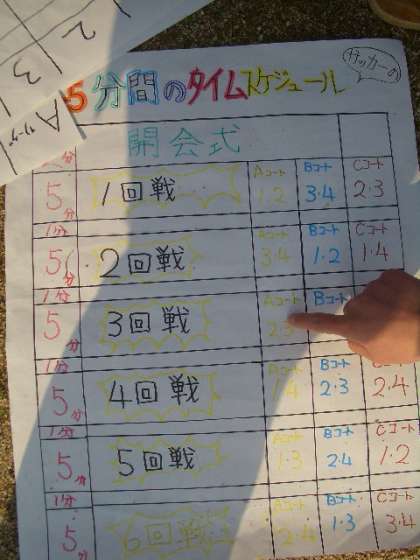 2
3
Aリーグ
サッカーの
5分間のタイムスケジュール
開会式
5分 1回戦 Aコート 1・2 Bコート 3・4 Cコート 2・3
1分
5分 2回戦 Aコート 3・4 Bコート 1・2 Cコート 1・4
1分
5分 3回戦 Aコート 2・3 Bコート
1分
5分 4回戦 Aコート 1・4 Bコート 2・3 Cコート 2・4
1分
5分 5回戦 Aコート 1・3 Bコート 2・4 Cコート 1・2
1分
5分 6回戦 Aコート 2・4 Bコート 1・3 Cコート 3・4